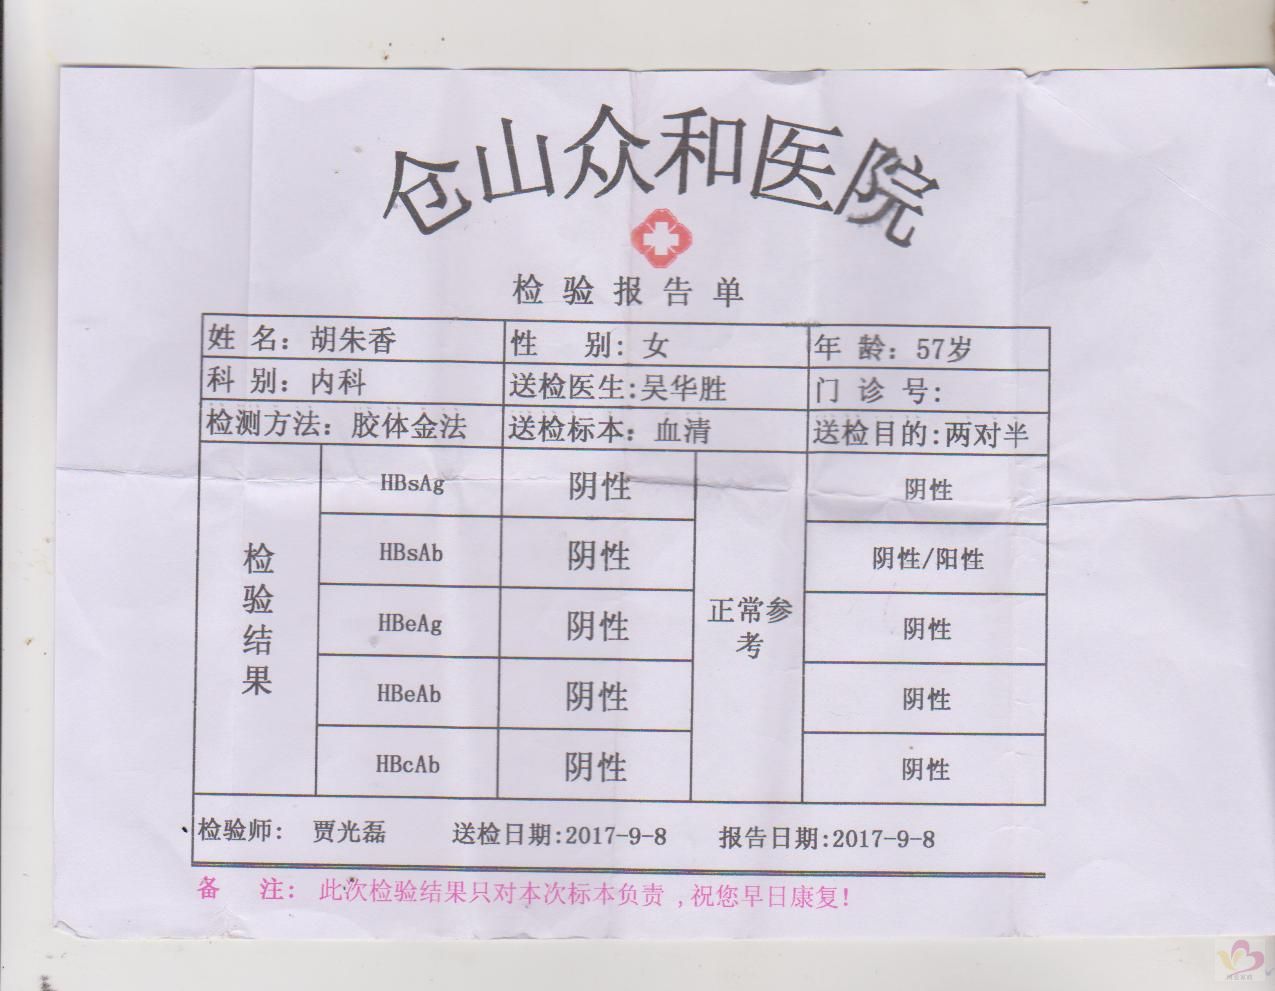 仓山众和医院
检验报告单
姓名：胡朱香 性别：女 年龄：57岁
科别：内科 送检医生：吴华胜 门诊号：
检测方法：胶体金法 送检标本：血清 送检目的：两对半
检验结果 正常参考
HBsAg 阴性 阴性
HBsAb 阴性 阴性/阳性
HBeAg 阴性 阴性
HBeAb 阴性 阴性
HBcAb 阴性 阴性
检验师：贾光磊 送检日期:2017-9-8 报告日期:2017-9-8
备注：此次检验结果只对本次标本负责,祝您早日康复!